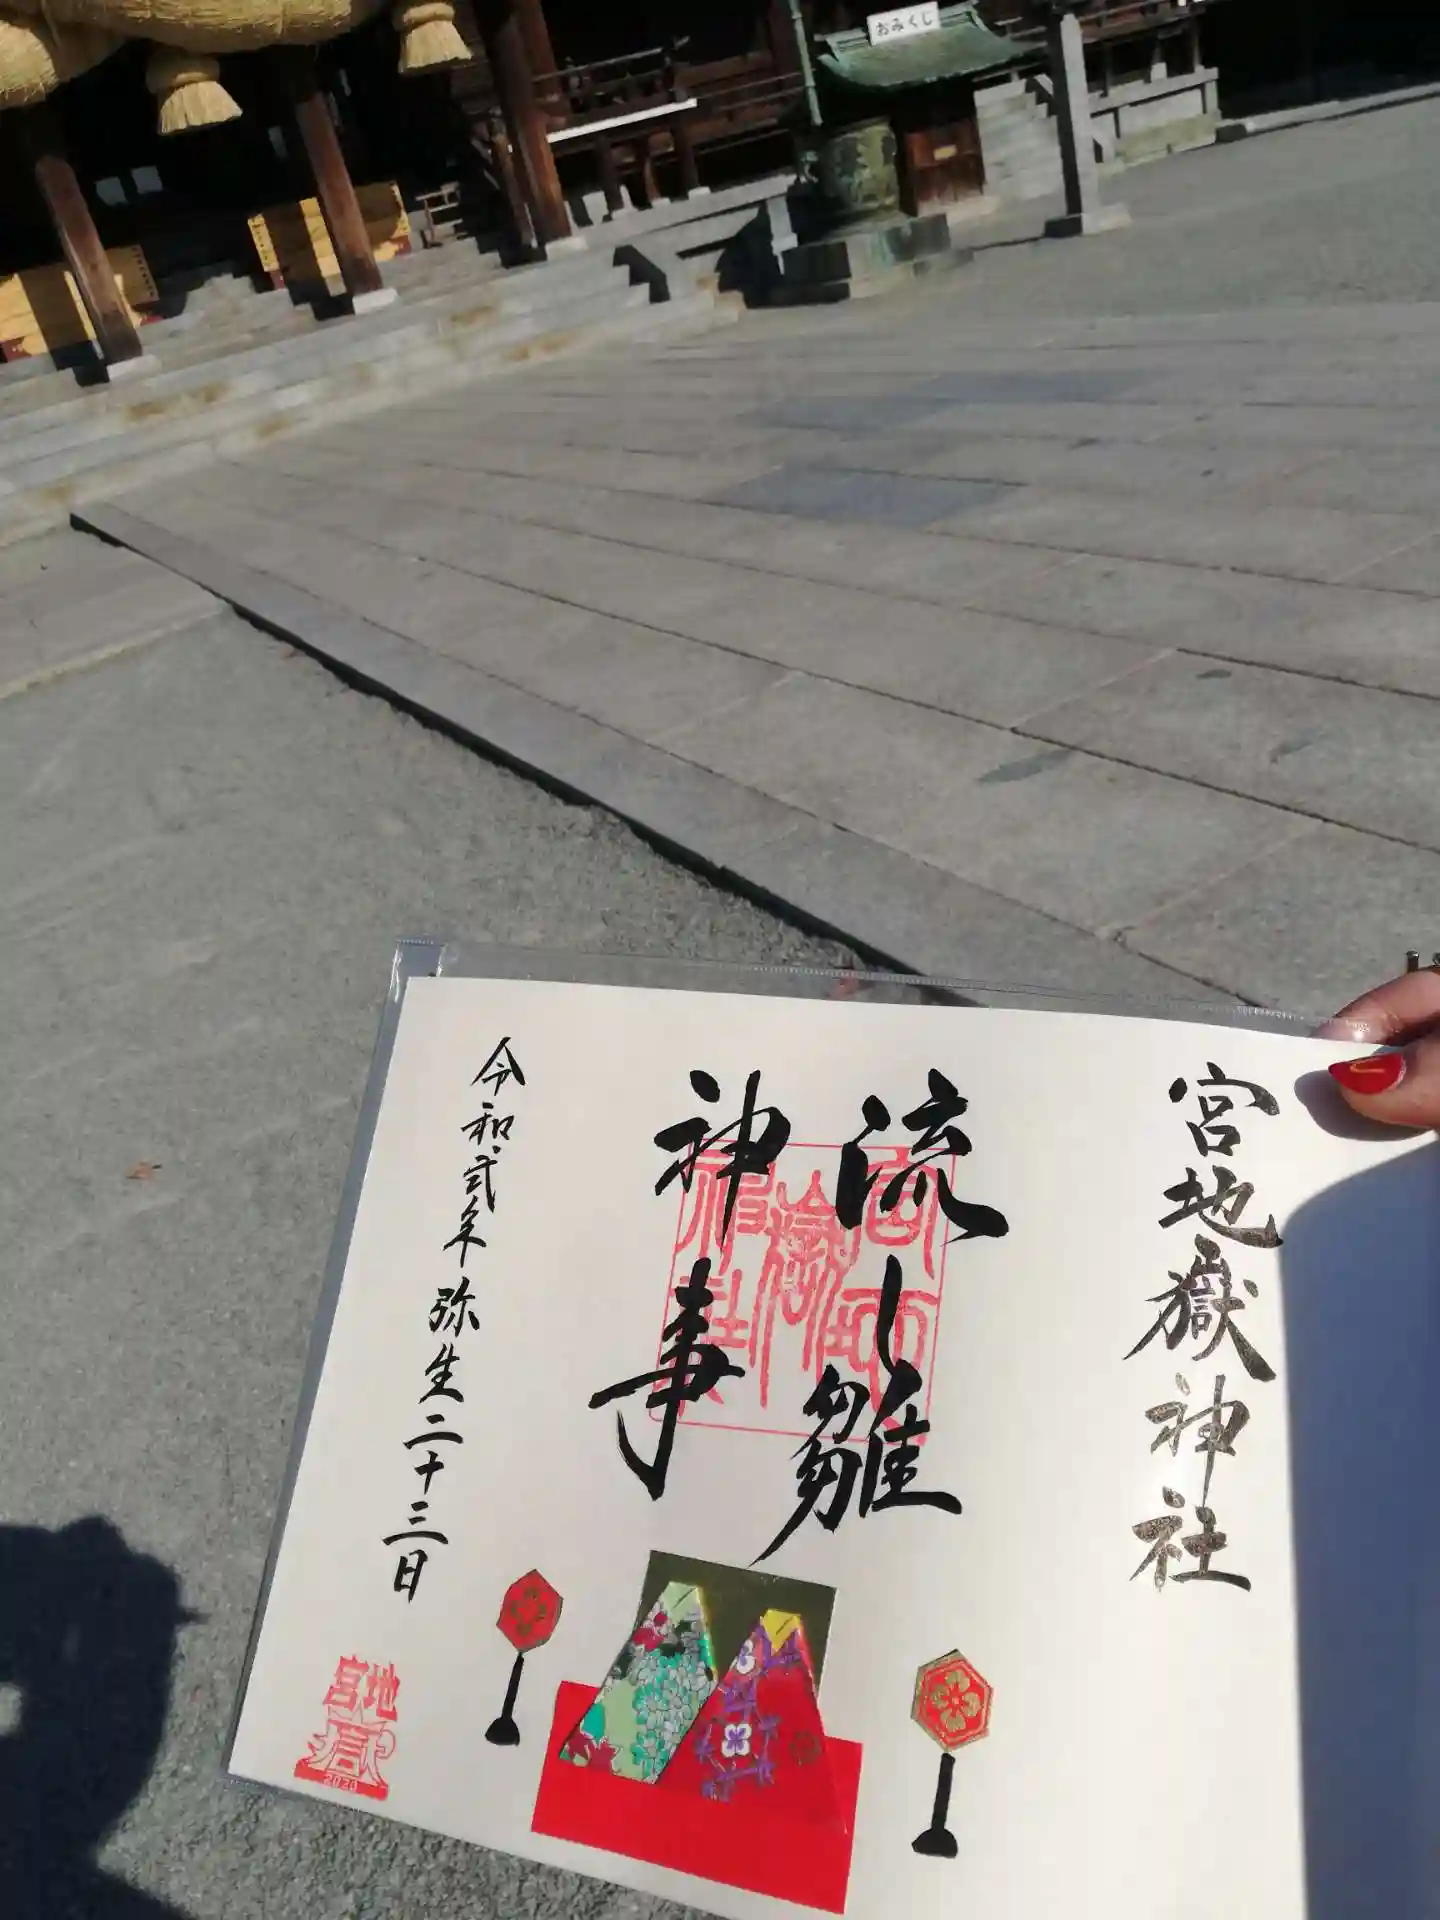 おみくじ
宮地嶽神社
流し雛
神事
令和弐年弥生二十三日
宮地嶽神社
宮地
嶽
2020